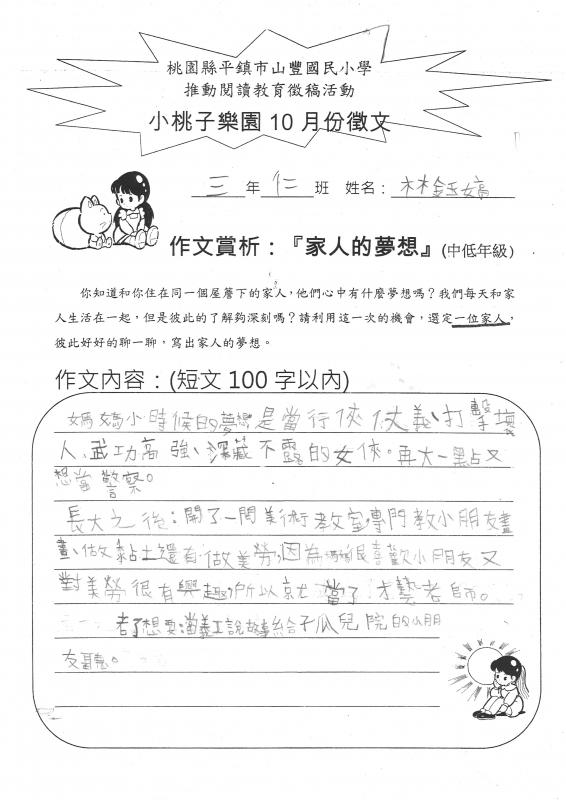 桃園縣平鎮市山豐國民小學
推動閱讀教育徵稿活動
小桃子樂園 10 月份徵文
三 年 仁 班 姓名： 林鈺嫮
作文賞析：『家人的夢想』(中低年級)
你知道和你住在同一個屋簷下的家人，他們心中有什麼夢想嗎？我們每天和家
人生活在一起，但是彼此的了解夠深刻嗎？請利用這一次的機會，選定一位家人，
彼此好好的聊一聊，寫出家人的夢想。
作文內容：(短文 100 字以內)
媽媽小時候的夢想是當行俠仗義、打擊壞
人、武功高強、深藏不露的女俠。再大一點又
想當警察。
長大之後：開了一間美術教室，專門教小朋友畫
畫、做黏土還有做美勞，因為媽媽很喜歡小朋友又
對美勞很有興趣，所以就當了才藝老師。
老了想要：當義工說故事給子瓜兒院的小朋
友聽。